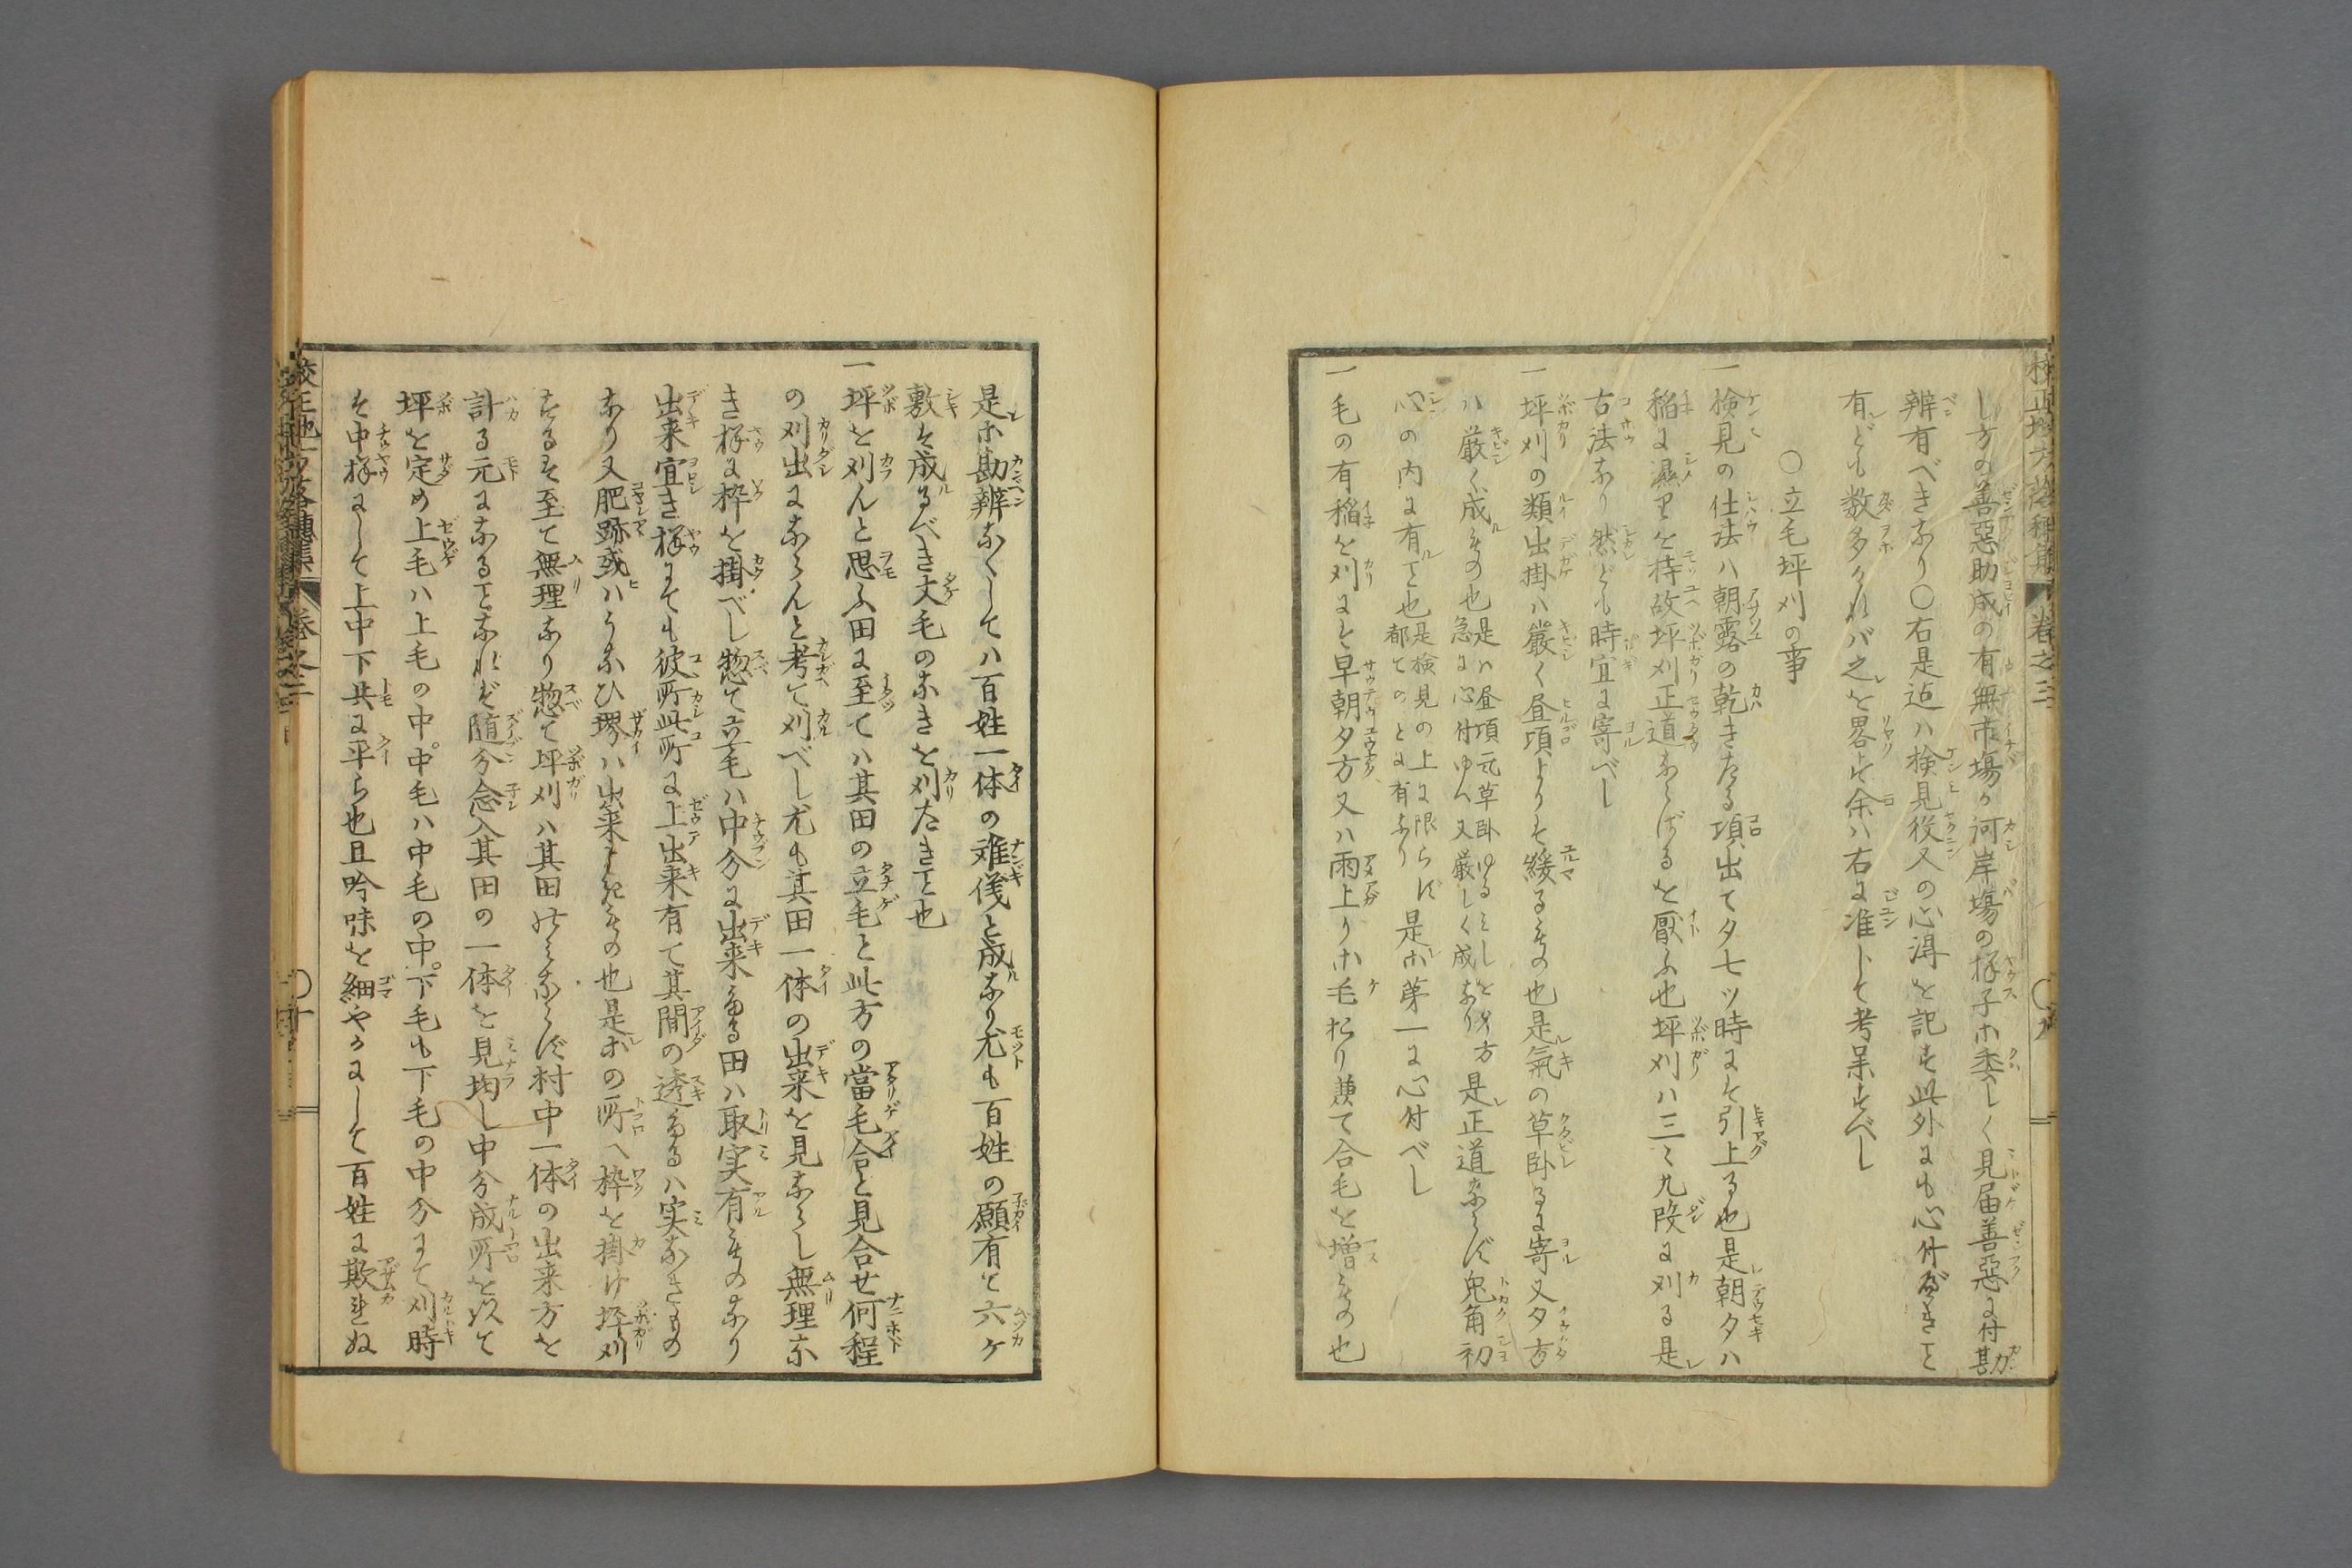 校正地方落穂集 巻之三 〇九
し方の善悪助成の有無市場河岸場の様子ホ委しく見届善悪に付勘
辨有べきなり〇右是迠ハ検見役人の心得を記す此外にも心付べきこと
有ども数多ケれバ之を畧す余ハ右に准して考呆すべし
〇立毛坪刈の事
一検見の仕法ハ朝露の乾きたる項出て夕七ツ時にて引上る也是朝夕ハ
稲に濕りを持故坪刈正道ならざるを厭ふ也坪刈ハ三ミ九段に刈る是
古法なり然ども時宜に寄べし
一坪刈の類出掛ハ厳く昼項よりは緩るもの也是氣の草臥るに寄又夕方
ハ厳く成もの也是ハ昼項元草臥ゆるミしを夕方
急に心付ゆへ又厳しく成なり是正道ならず兎角初
心の内に有こと也是検見の上に限らず
都てのとに有なり是ホ第一に心付べし
一毛の有稲を刈には早朝夕方又ハ雨上りホ毛松り兼て合毛を増もの也
是ホ勘辨なくしてハ百姓一体の难儀と成なり尤も百姓の願有と六ケ
敷は成るべき丈毛のなきを刈たきこと也
一坪を刈んと思ふ田に至てハ其田の立毛と此方の當毛合と見合せ何程
の刈出にならんと考て刈べし尤も其田一体の出来を見ならし無理な
き様に枠を掛べし惣て立毛ハ中分に出来たる田ハ取実有ものなり
出来宜き様にても彼所此所に上出来有て其間の透たるハ実なきもの
なり又肥跡或ハうなひ堺ハ出来よきもの也是ホの所へ枠を掛け坪刈
するは至て無理なり惣て坪刈ハ其田のミならず村中一体の出来方を
計る元になることなれバ随分念入其田の一体を見均し中分成所を以て
坪を定め上毛ハ上毛の中。中毛ハ中毛の中。下毛も下毛の中分にて刈時
は中様にして上中下共に平ら也且吟味を細やかにして百姓に欺れぬ
校正地方落穂集 巻之三 〇十